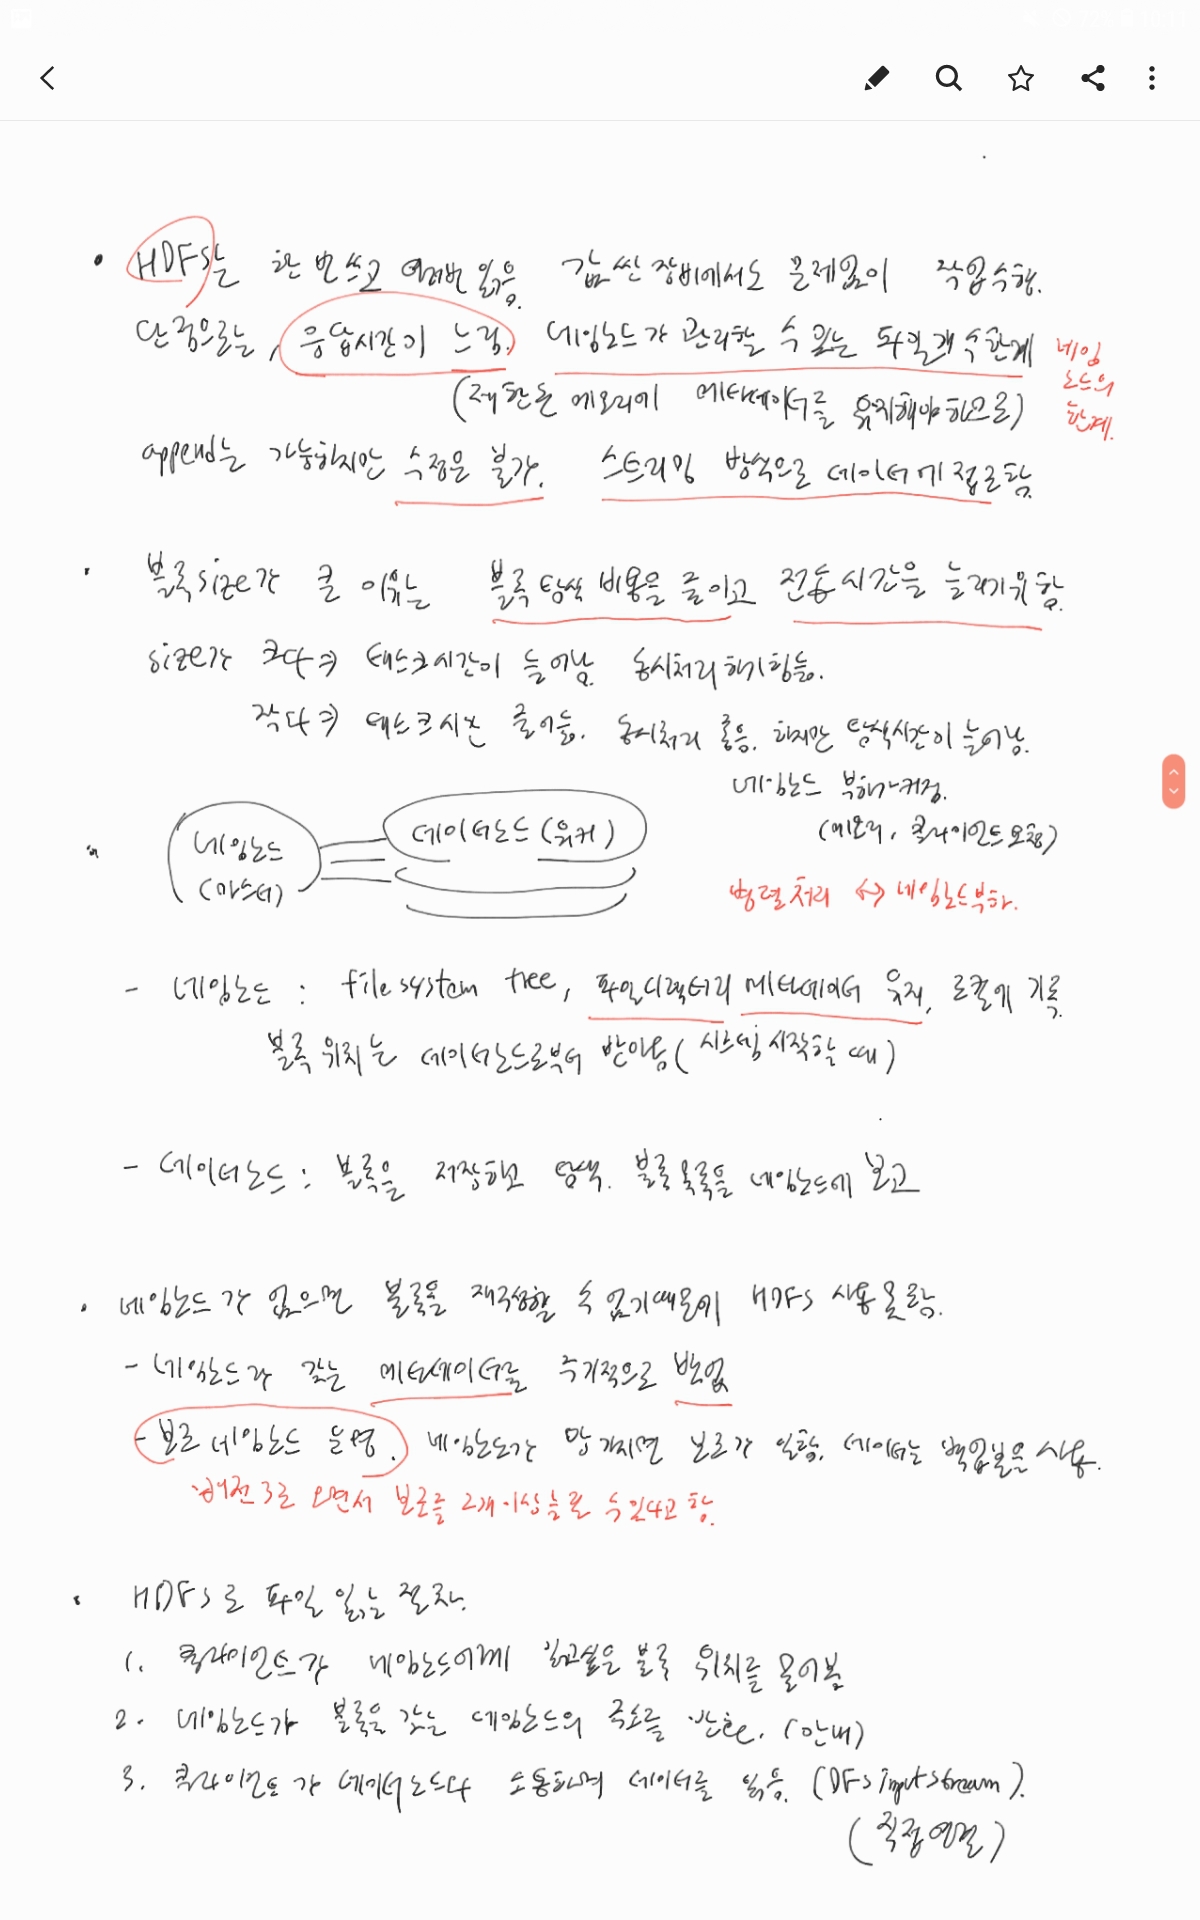 • HDFS는 한 번 쓰고 여러번 읽음. 값싼 장비에서도 문제없이 작업수행.
단점으로는, 응답시간이 느림. 네임노드가 관리할 수 있는 파일 개수 한계
네임노드의 한계.
(제한된 메모리에 메타데이터를 유지해야하므로)
append는 가능하지만 수정은 불가. 스트리밍 방식으로 데이터에 접근함.
• 블록size가 큰 이유는 블록 탐색 비용을 줄이고 전송시간을 늘리기위함.
size가 크다 ⇒ 태스크시간이 늘어남. 동시처리 하기 힘듦.
작다 ⇒ 태스크시간 줄어듦. 동시처리 좋음. 하지만 탐색시간이 늘어남.
네임노드 부하가 커짐.
(메모리, 클라이언트 요청)
병렬처리 ↔ 네임노드부하.
네임노드
(마스터)
데이터노드(워커)
- 네임노드 : file system tree, 파일디렉터리 메타데이터 유지, 로컬에 기록
블록 위치는 데이터노드로부터 받아옴(시스템 시작할 때)
- 데이터노드 : 블록을 저장하고 탐색. 블록 목록을 네임노드에 보고
• 네임노드가 없으면 블록을 재구성할 수 없기때문에 HDFS 사용 못함.
- 네임노드가 갖는 메타데이터를 주기적으로 백업
- 보조 네임노드 운영. 네임노드가 망가지면 보조가 일함. 데이터는 백업본을 사용.
버전3로 오면서 보조를 2개이상 둘 수 있다고 함.
• HDFS로 파일 읽는 절차.
1. 클라이언트가 네임노드에게 읽고싶은 블록 위치를 물어봄
2. 네임노드가 블록을 갖는 데임노드의 주소를 반환. (안내)
3. 클라이언트가 데이터노드와 소통하며 데이터를 읽음. (DFSinputstream).
(직접연결)